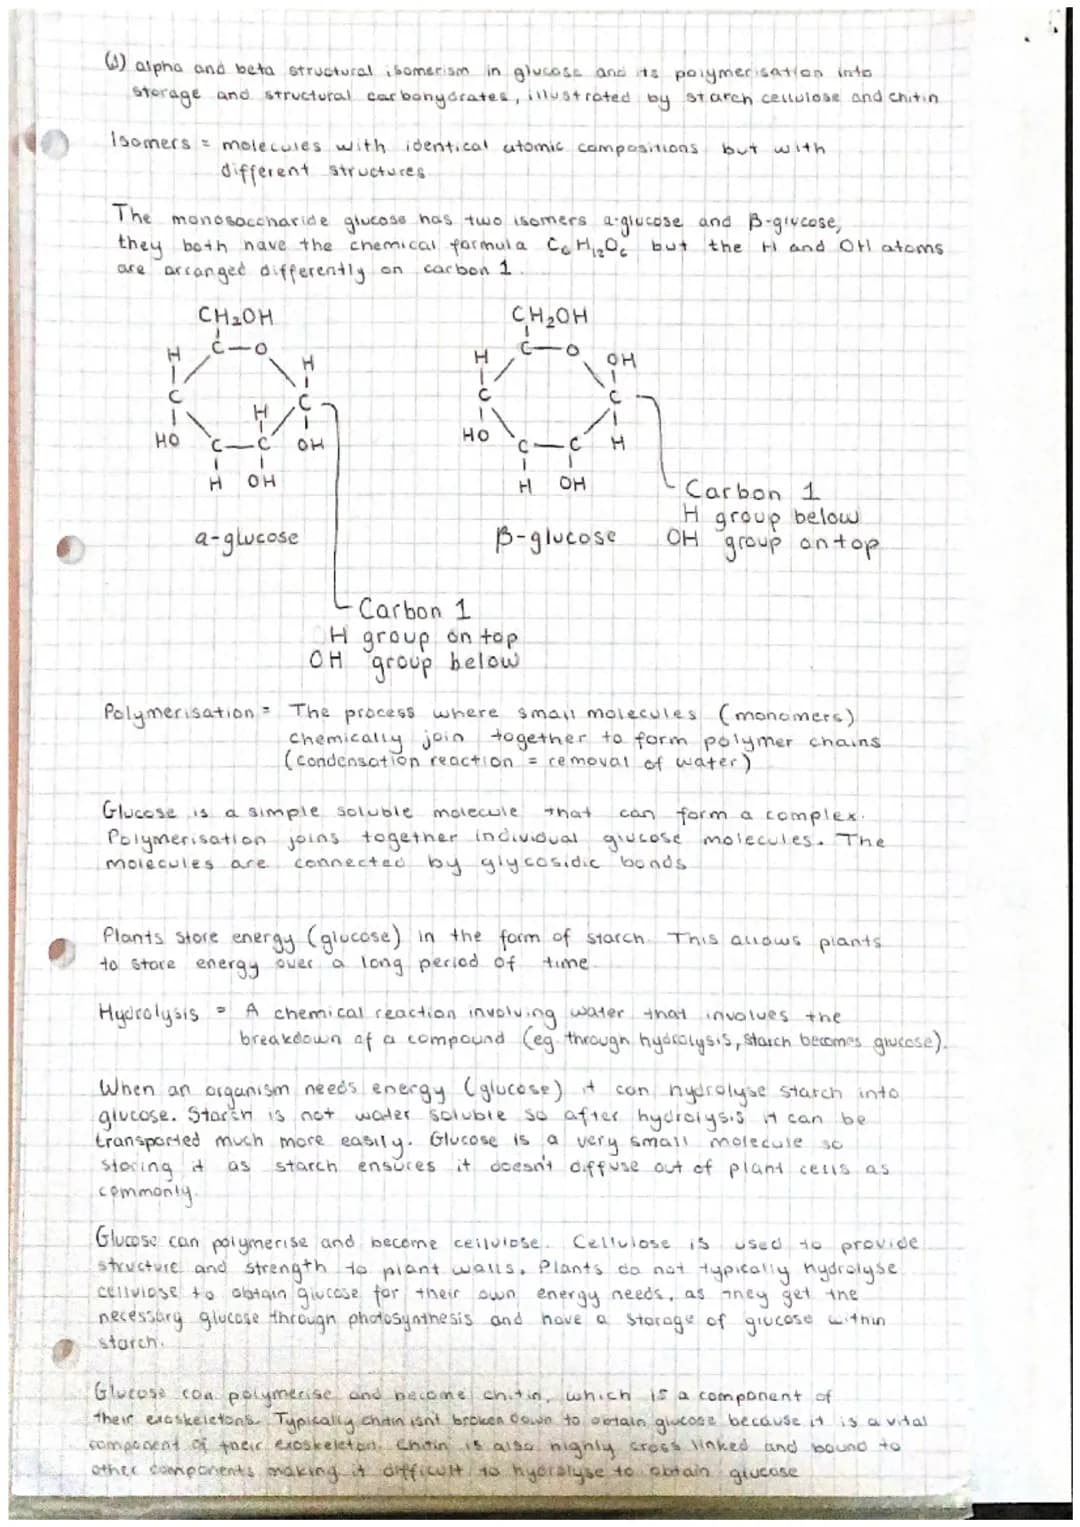 (d) alpha and beta structural isomerism in glucose and its polymerisation into
storage and structural carbohydrates, illustrated by starch cellulose and chitin
Isomers = molecules with identical atomic compositions but with
different structures
The monosaccharide glucose has two isomers a-glucose and β-glucose,
they both have the chemical formula C₆H₁₂O₆ but the H and OH atoms
are arranged differently on carbon 1.
CH₂OH CH₂OH
H C O H H C O OH
C H C C C
HO C C OH HO C C H
H OH H OH
a-glucose β-glucose
Carbon 1
H group below
OH group on top
Carbon 1
H group on top
OH group below
Polymerisation = The process where small molecules (monomers)
chemically join together to form polymer chains
(condensation reaction = removal of water)
Glucose is a simple soluble molecule that can form a complex.
Polymerisation joins together individual glucose molecules. The
molecules are connected by glycosidic bonds
Plants store energy (glucose) in the form of starch. This allows plants
to store energy over a long period of time.
Hydrolysis = A chemical reaction involving water that involves the
breakdown of a compound (eg. through hydrolysis, starch becomes glucose).
When an organism needs energy (glucose) it can hydrolyse starch into
glucose. Starch is not water soluble so after hydrolysis it can be
transported much more easily. Glucose is a very small molecule so
storing it as starch ensures it doesn't diffuse out of plant cells as
commonly.
Glucose can polymerise and become cellulose. Cellulose is used to provide
structure and strength to plant walls. Plants do not typically hydrolyse
cellulose to obtain glucose for their own energy needs, as they get the
necessary glucose through photosynthesis and have a storage of glucose within
starch.
Glucose can polymerise and become chitin, which is a component of
their exoskeletons. Typically chitin isnt broken down to obtain glucose because it is a vital
component of their exoskeleton. Chitin is also highly cross linked and bound to
other components making it difficult to hydrolyse to obtain glucose